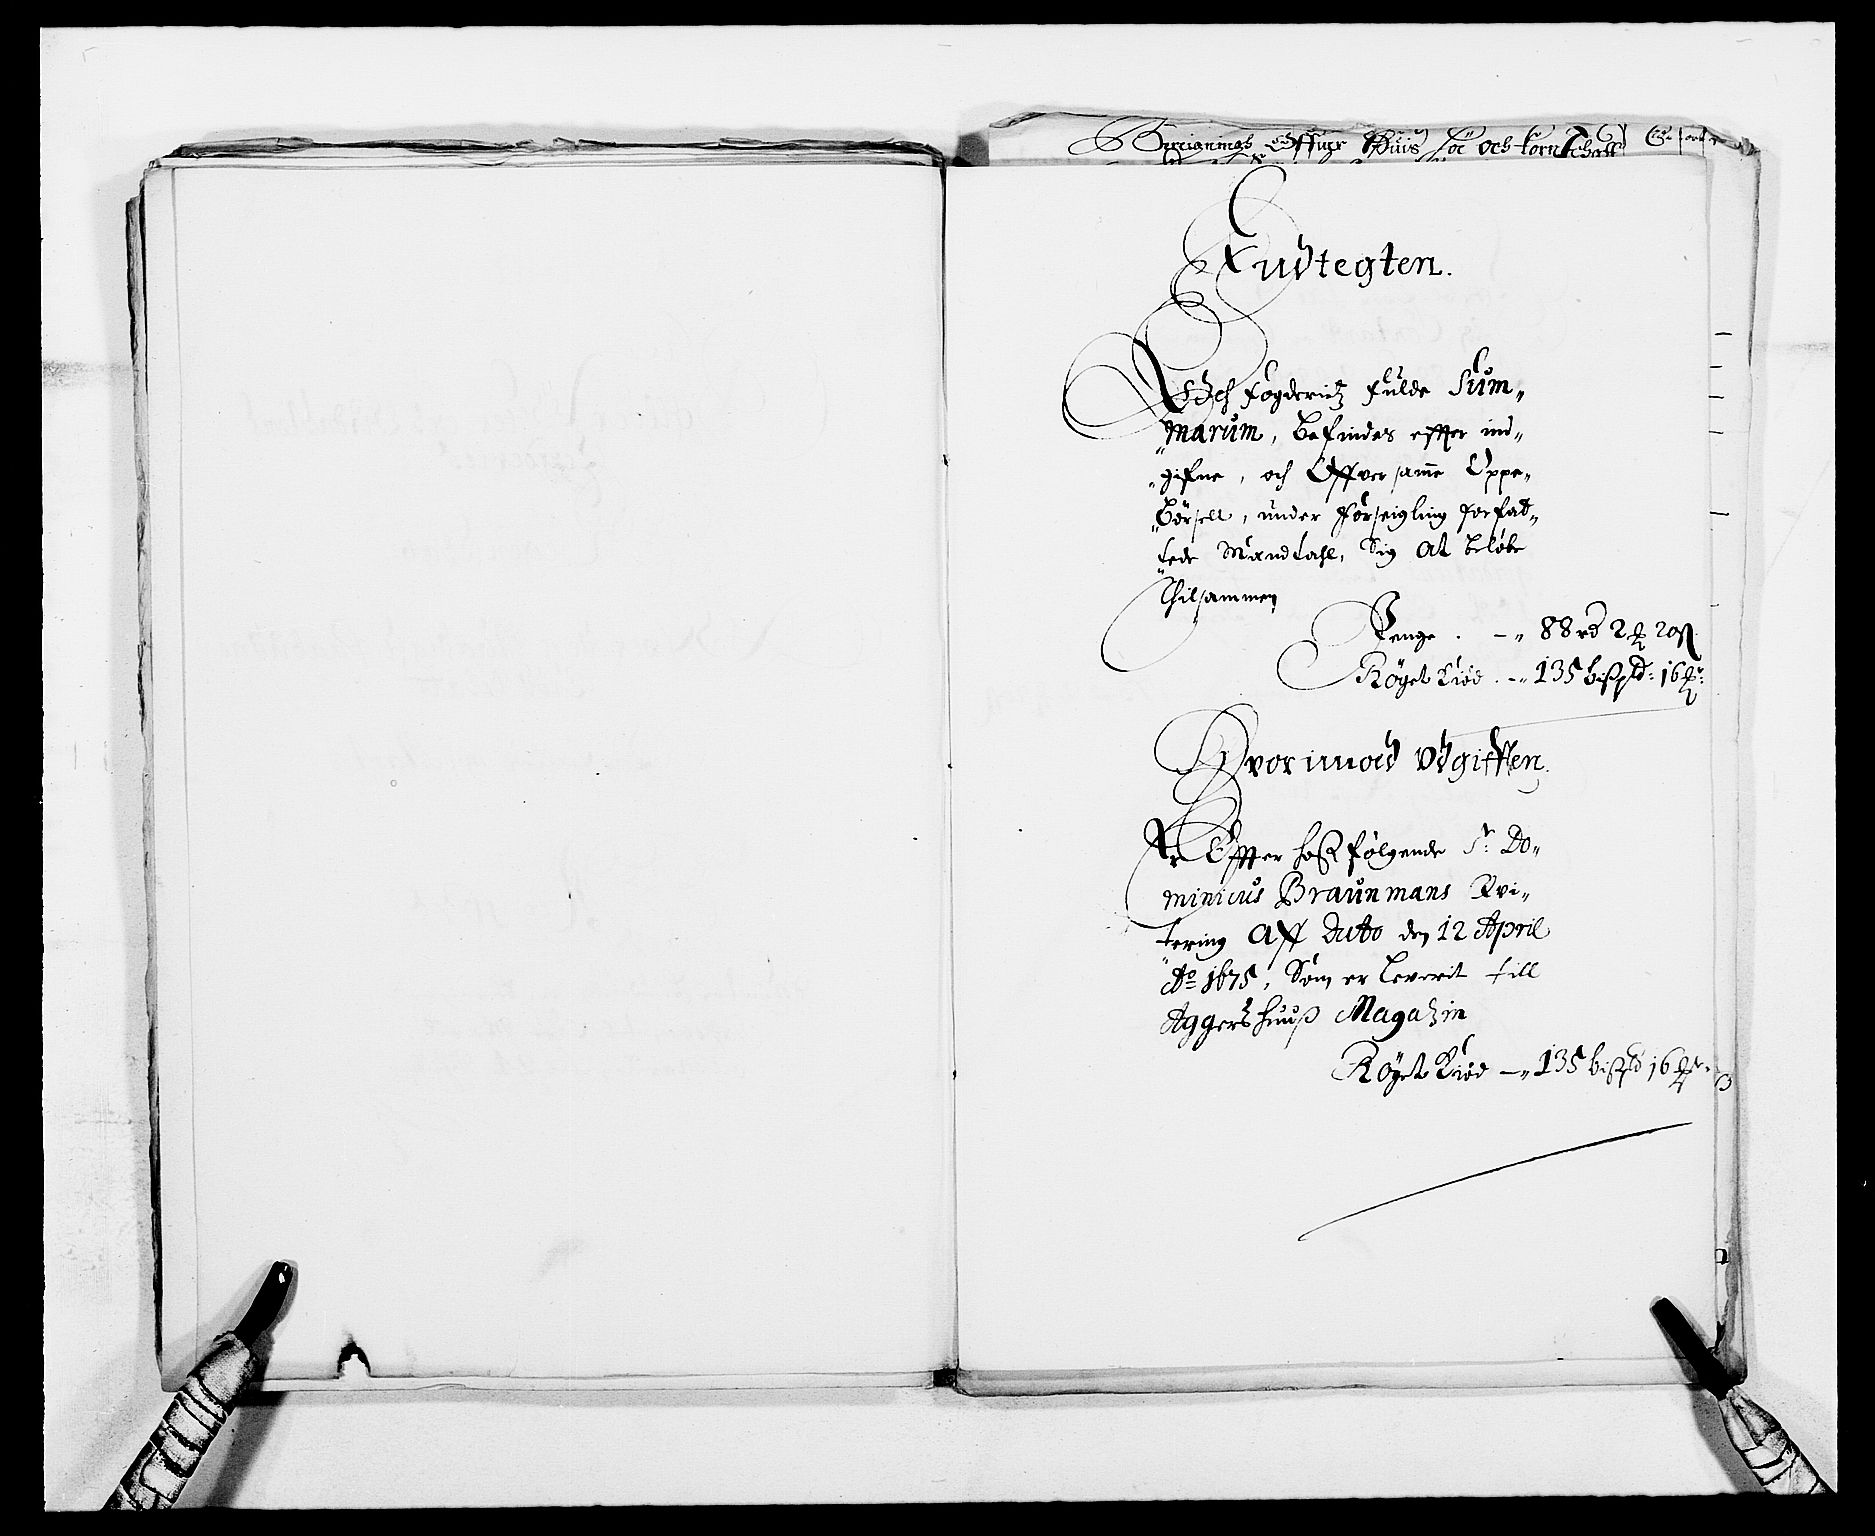 Bereignings Offuer Huus Høe och Korn Schatt
Indtegten.
Och Fogderietz Fulde Sum„
„marum, Befindes effter ind„
„gifne, och Offver samme Oppe„
„børsell, under Forseigling forfat„
„tede Mandtahl, Sig at beløbe
Thilsammen
Penge . — „ 88 rd 2 ₰ 20 ß
Røget Kiød . — „ 135 bißpd: 16 ₰r:
Hvorimod Udgifften.
Er Effter hoßfølgende Sr: Do„
minicus Braunmans Qvi„
„tering Aff Dato den 12 April
Ao 1675, Som er leverit till
Aggershuuß Magazin
Røget Kiød — „ 135 bißpd 16 ₰r.